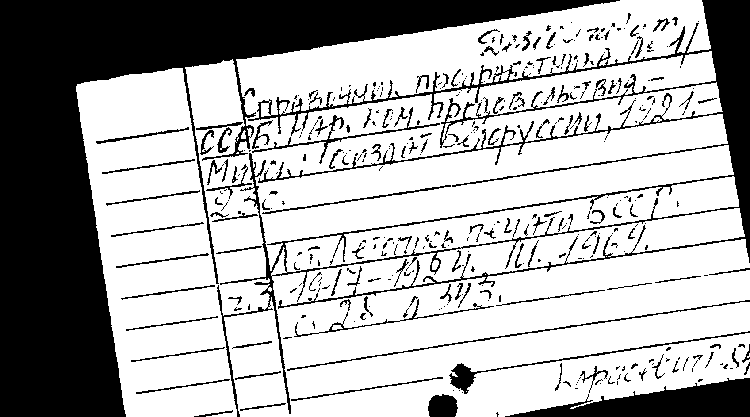 Desideratum
Справочник продработника. № 1/
ССРБ. Нар. ком. продовольствия.-
Минск: Госиздат Белоруссии, 1921.-
23с.
Ист. Летопись печати БССР.
ч.3. 1917-1924., М., 1969.
с. 28. п 343.